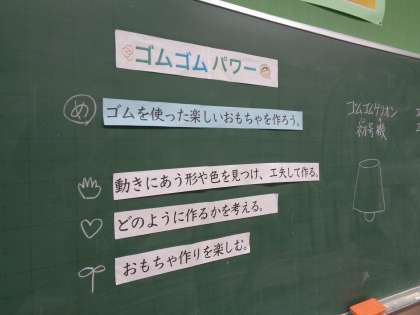 ゴムゴムパワー
め ゴムを使った楽しいおもちゃを作ろう。
動きにあう形や色を見つけ、工夫して作る。
どのように作るかを考える。
おもちゃ作りを楽しむ。